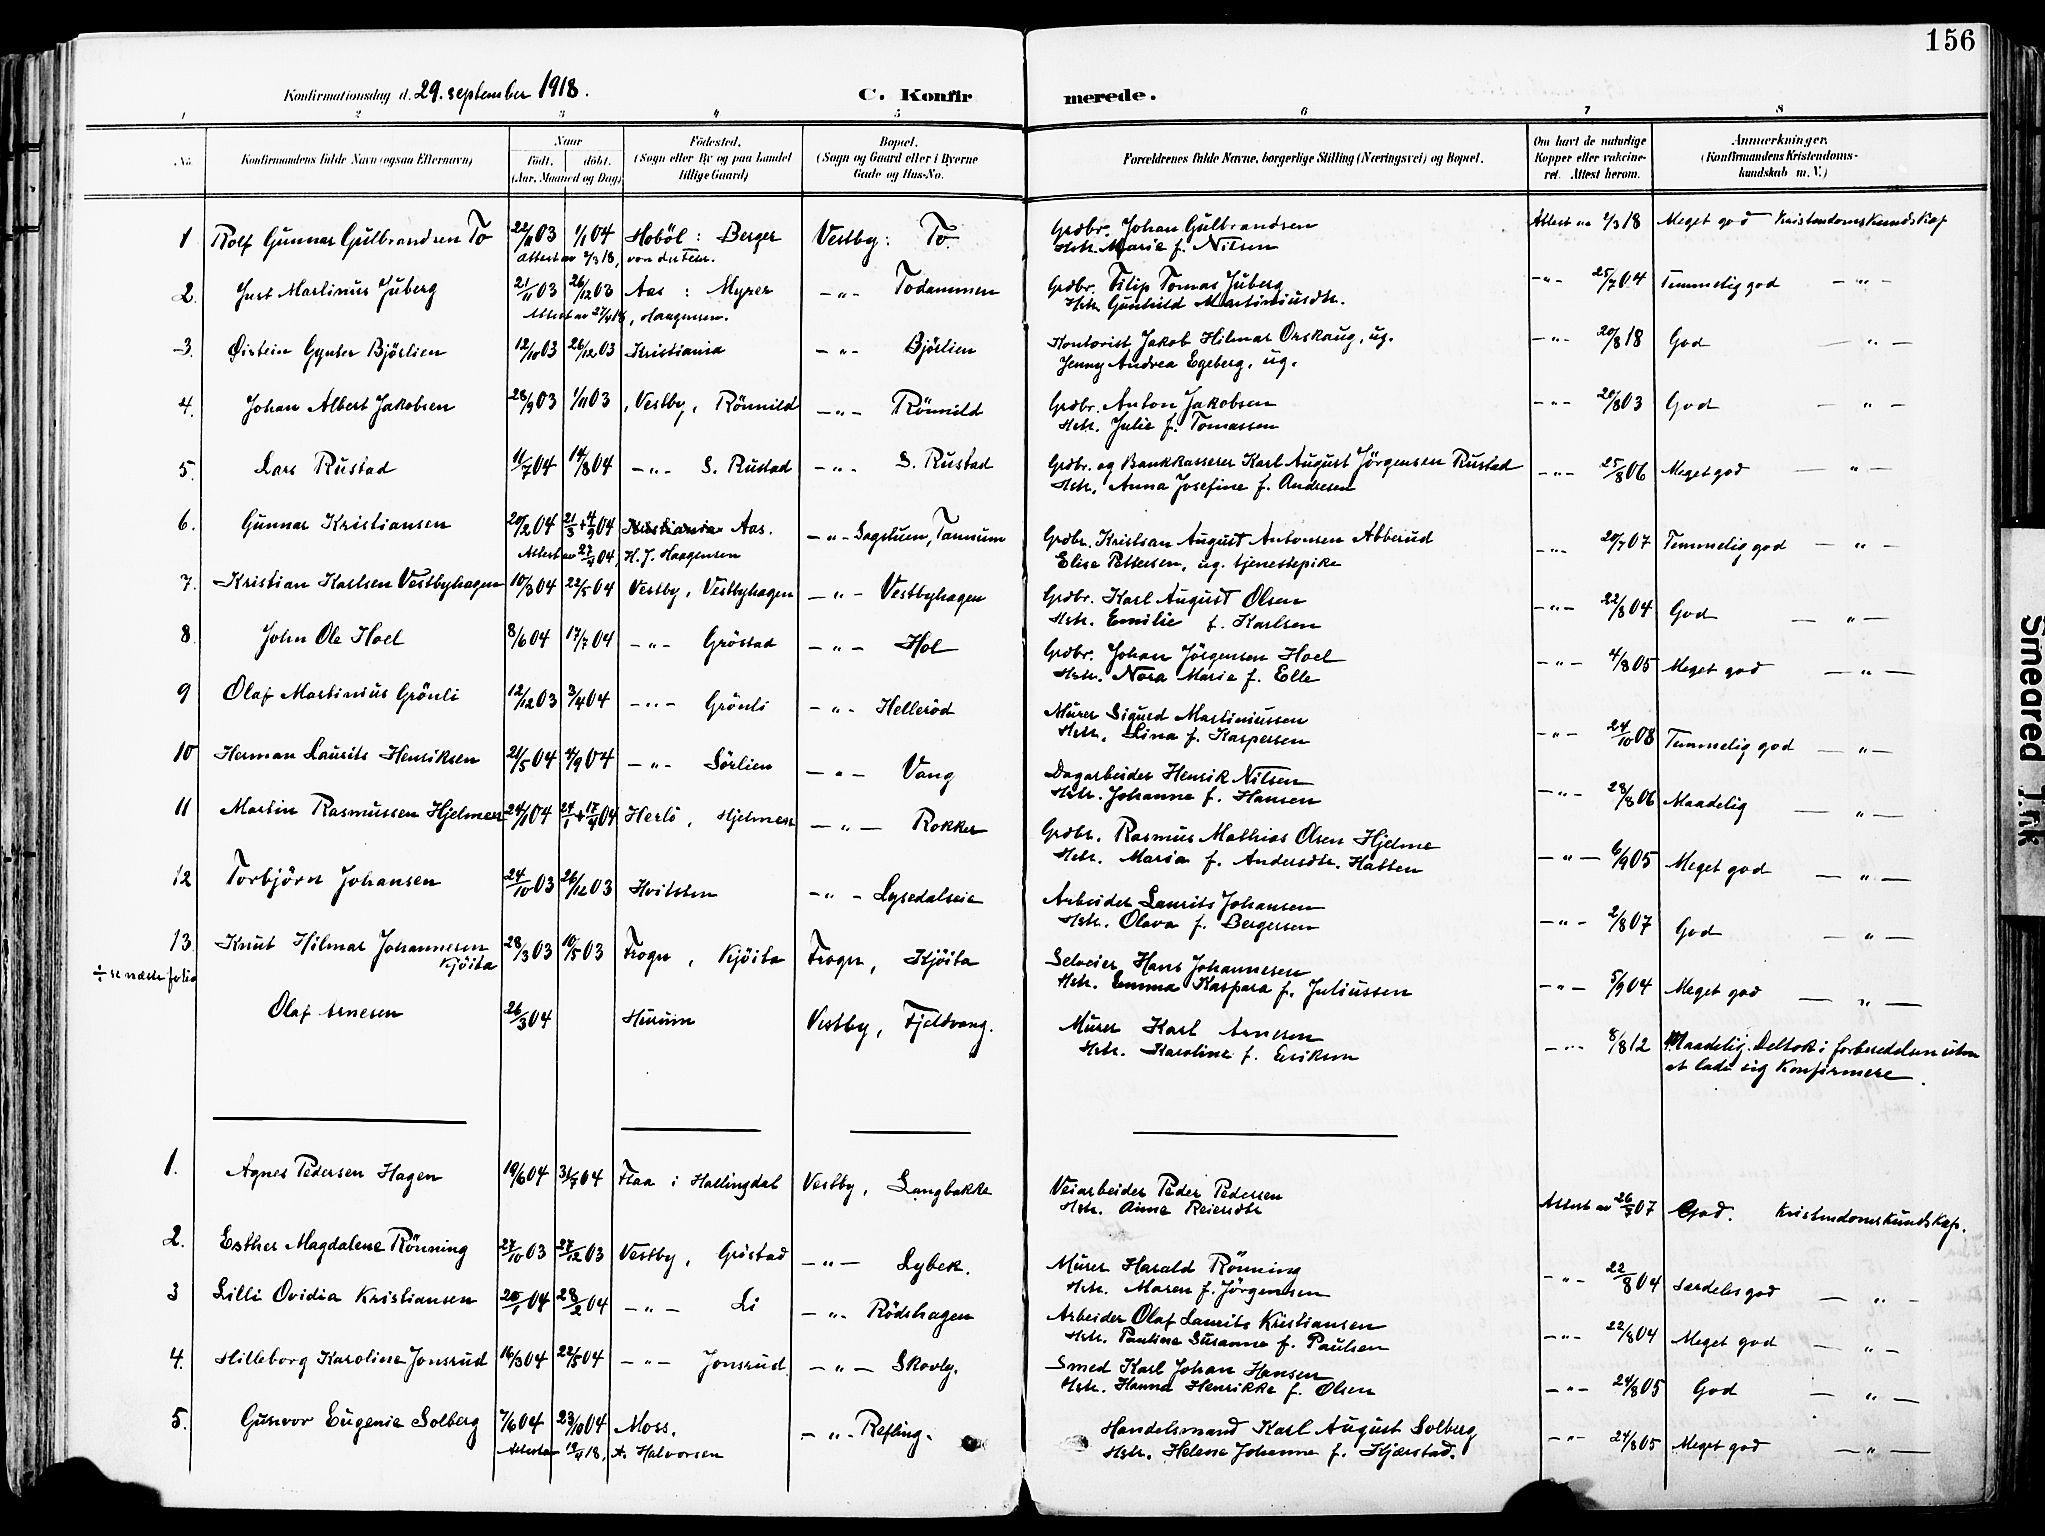 156
Konfirmationsdag d. 29. september 1918.
C. Konfirmerede.
1 2 3 4 5 6 7 8
No. Konfirmandens fulde Navn (ogsaa Efternavn) Naar Født. døbt. (Aar, Maaned og Dag) Fødested. (Sogn eller By og paa Landet tillige Gaard) Bopæl. (Sogn og Gaard eller i Byerne Gade og Hus-No. Forældrenes fulde Navne, borgerlige Stilling (Næringsvei) og Bopæl. Om havt de naturlige Kopper eller vakcineret. Attest herom. Anmærkninger. (Konfirmandens Kristendomskundskab m. V.)
1 Rolf Gunnar Gulbrandsen To 22/11 03 1/1 04 Hobøl : Berger Vestby : To Grdbr. Johan Gulbrandsen Attest av 1/3 18 Meget god Kristendomskundskap
Attest av 2/3 18, Hstr. Marie f. Nilsen
2. Just Martinus Juberg 21/11 03 26/12 03 Aas : Myrer — " — Todammen Grdbr. Filip Tomas Juberg — " — 25/7 04 Temmelig god — " —
Attest av 27/4 18, Haagensen. Hstr. Gunhild Martiniusdtr.
3. Øistein Gynter Bjørlien 12/10 03 26/12 03 Kristiania — " — Bjørlien Kontorist Jakob Hilmar Orskaug, ug. — " — 20/8 18 God — " —
Jenny Andrea Egeberg, ug.
4. Johan Albert Jakobsen 28/9 03 1/11 03 Vestby, Rönnild — " — Rönnild Grdbr. Anton Jakobsen — " — 20/8 03 God — " —
Hstr. Julie f. Tomassen
5. Lars Rustad 11/7 04 14/8 04 — " — S. Rustad — " — S. Rustad Grdbr. og Bankkasserer Karl August Jörgensen Rustad — " — 25/8 06 Meget god — " —
Hstr. Anna Josefine f. Andresen
6. Gunnar Kristiansen 20/2 04 21/3 + 4/9 04 Kristiania Aas. — " — Sagstuen, Tannum Grdbr. Kristian August Antonsen Abberud — " — 20/7 07 Temmelig god — " —
Attest av 27/4 04, H. J. Haagensen Elise Pettersen, ug. tjenestepike
7. Kristian Karlsen Vestbyhagen 10/3 04 22/5 04 Vestby, Vestbyhagen — " — Vestbyhagen Grdbr. Karl August Olsen — " — 22/8 04 God — " —
Hstr. Emilie f. Karlsen
8. John Ole Hoel 8/6 04 17/7 04 — " — Gröstad — " — Hol Grdbr. Johan Jörgensen Hoel — " — 4/8 05 Meget god — " —
Hstr. Nora Marie f. Elle
9 Olaf Martinius Grönli 12/12 03 3/4 04 — " — Grönli — " — Helleröd Murer Sigurd Martiniussen — " — 24/10 08 Temmelig god — " —
Hstr. Lina f. Kaspersen
10 Herman Laurits Henriksen 21/5 04 4/9 04 — " — Sörlien — " — Vang Dagarbeider Henrik Nilsen — " — 28/8 06 Maadelig — " —
Hstr. Johanne f. Hansen
11 Martin Rasmussen Hjelmen 24/1 04 24/1 + 17/4 04 Herlö, Hjelmen — " — Rokker Grdbr. Rasmus Mathias Olsen Hjelme — " — 6/9 05 Meget god — " —
Hstr. Maria f. Andersdtr. Hatten
12 Torbjörn Johansen 24/10 03 26/12 03 Hvitsten — " — Lysedalseie Arbeider Laurits Johansen — " — 2/8 07 God — " —
Hstr. Olava f. Bergersen
13. Knut Hilmar Johannesen 28/3 03 10/5 03 Frogn, Kjöita Frogn, Kjöita Selveier Hans Johannesen — " — 5/9 04 Meget god — " —
Kjöita Hstr. Emma Kaspara f. Juliussen
÷ se næste folio
Olaf Arnesen 26/3 04 Hurum Vestby, Fjeldvang. Murer Karl Arnesen — " — 8/8 12 Maadelig. Deltok i forberedelsen uten
Hstr. Karoline f. Eriksen at lade sig Konfirmere.
1. Agnes Pedersen Hagen 19/6 04 31/7 04 Flaa i Hallingdal Vestby, Langbakke Veiarbeider Peder Pedersen Attest av 26/7 07 God. Kristendomskundskap.
Hstr. Anne Reiersdtr
2. Esther Magdalene Rönning 27/10 03 27/12 03 Vestby, Gröstad — " — Lybek. Murer Harald Rönning — " — 22/8 04 Særdeles god — " —
Hstr. Maren f. Jörgensen
3 Lilli Ovidia Kristiansen 20/1 04 28/2 04 — " — Li — " — Rödshagen Arbeider Olaf Laurits Kristiansen — " — 22/8 04 Meget god — " —
Hstr. Pauline Susanne f. Paulsen
4. Hilleborg Karoline Jonsrud 16/3 04 22/5 04 — " — Jonsrud — " — Skovly. Smed Karl Johan Hansen — " — 24/8 05 God — " —
Hstr. Hanna Henrikke f. Olsen
5. Gunvor Eugenie Solberg 7/6 04 23/10 04 Moss. — " — Refling. Handelsmand Karl August Solberg — " — 24/8 05 Meget god — " —
18, A. Halvorsen Hstr. Helene Johanne f. Kjærstad.
Smeared Ink